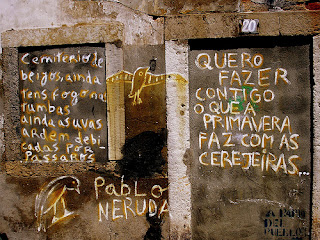 Cemiterio de
beijos, ainda
tens fogo na
tumbas
ainda as uvas
ARdem debi
cadas por
PASSAROS
20
QUERO
FAZER
CONTIGO
O QUE A
PRIMAVERA
FAZ COM AS
CEREJEIRAS...
PABLO
NERUDA